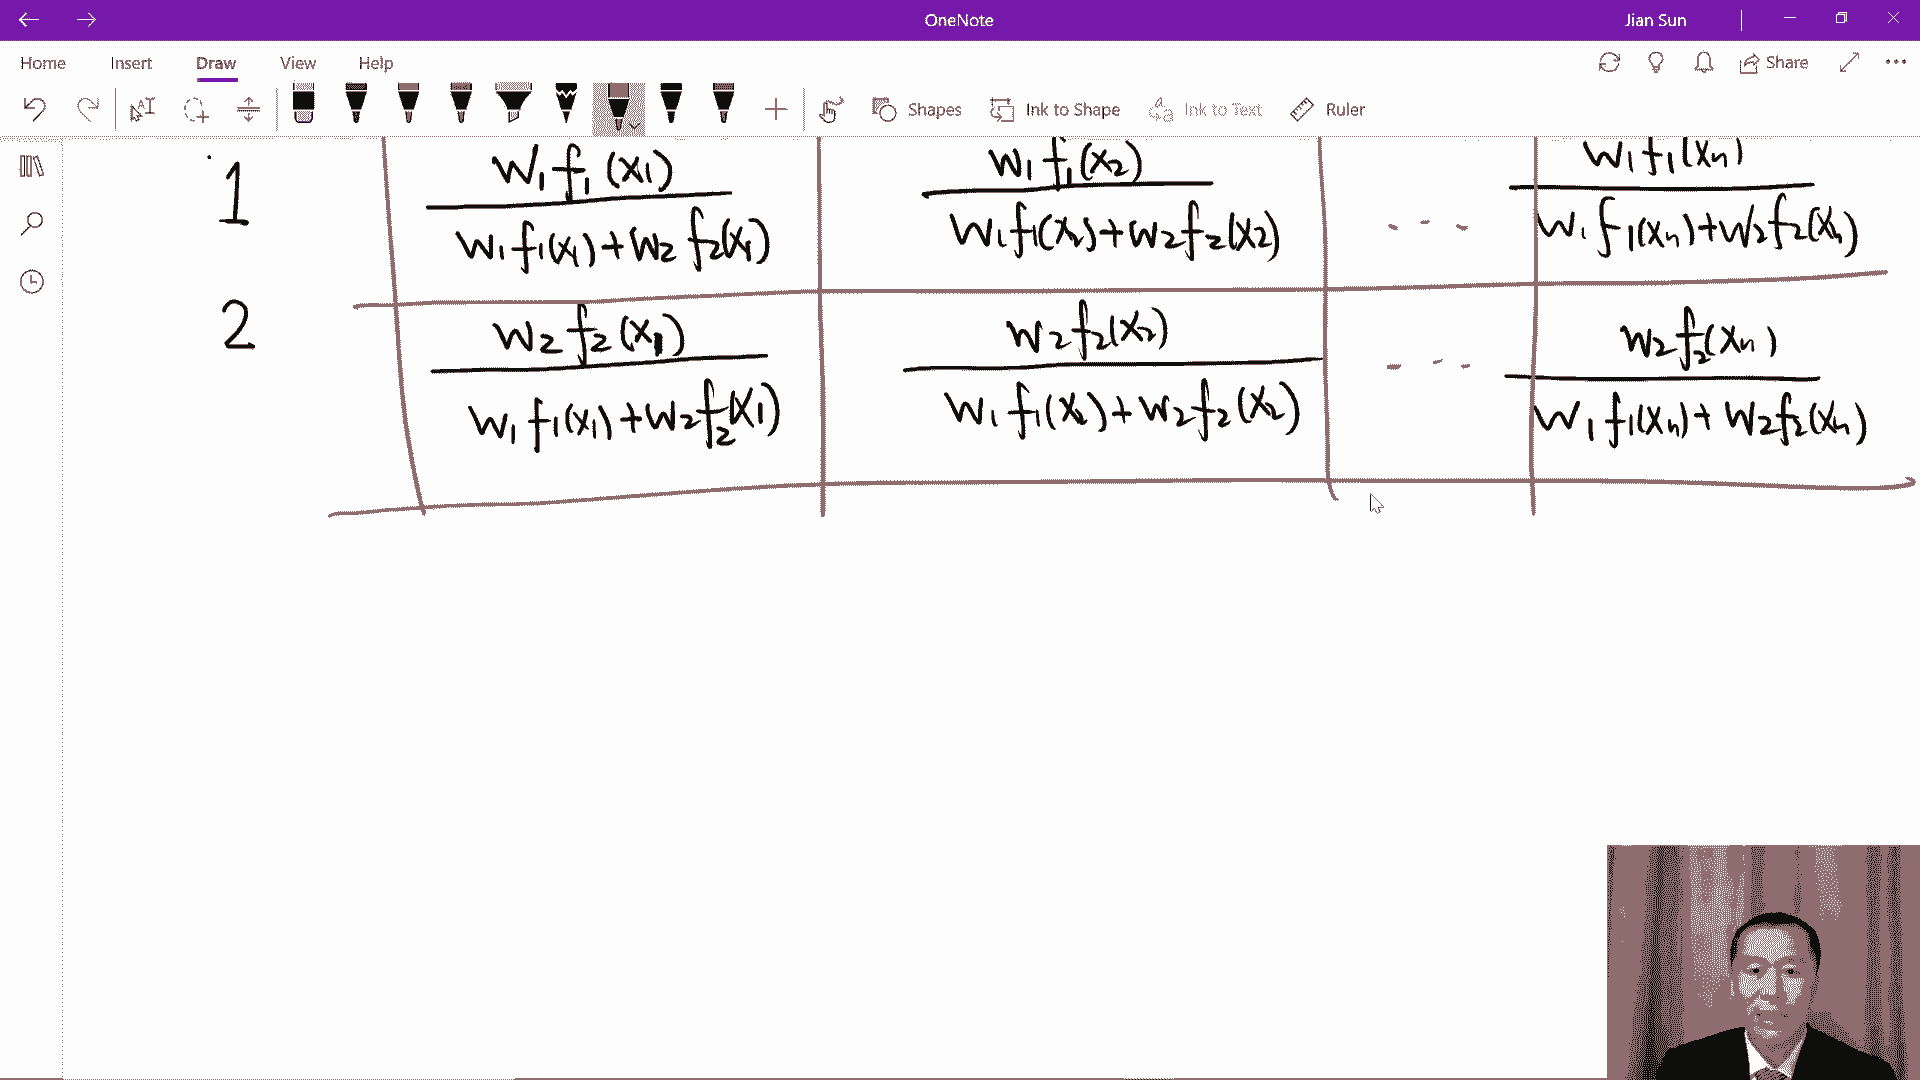 OneNote
Jian Sun
Home Insert Draw View Help
Share
Shapes Ink to Shape Ink to Text Ruler
1
W1 f1 (x1)
W1 f1(x1) + W2 f2(x1)
W1 f1 (x2)
W1 f1(x2) + W2 f2(x2)
. . .
W1 f1(xn)
W1 f1(xn) + W2 f2(xn)
2
W2 f2 (x1)
W1 f1(x1) + W2 f2(x1)
W2 f2(x2)
W1 f1(x2) + W2 f2(x2)
- - -
W2 f2(xn)
W1 f1(xn) + W2 f2(xn)